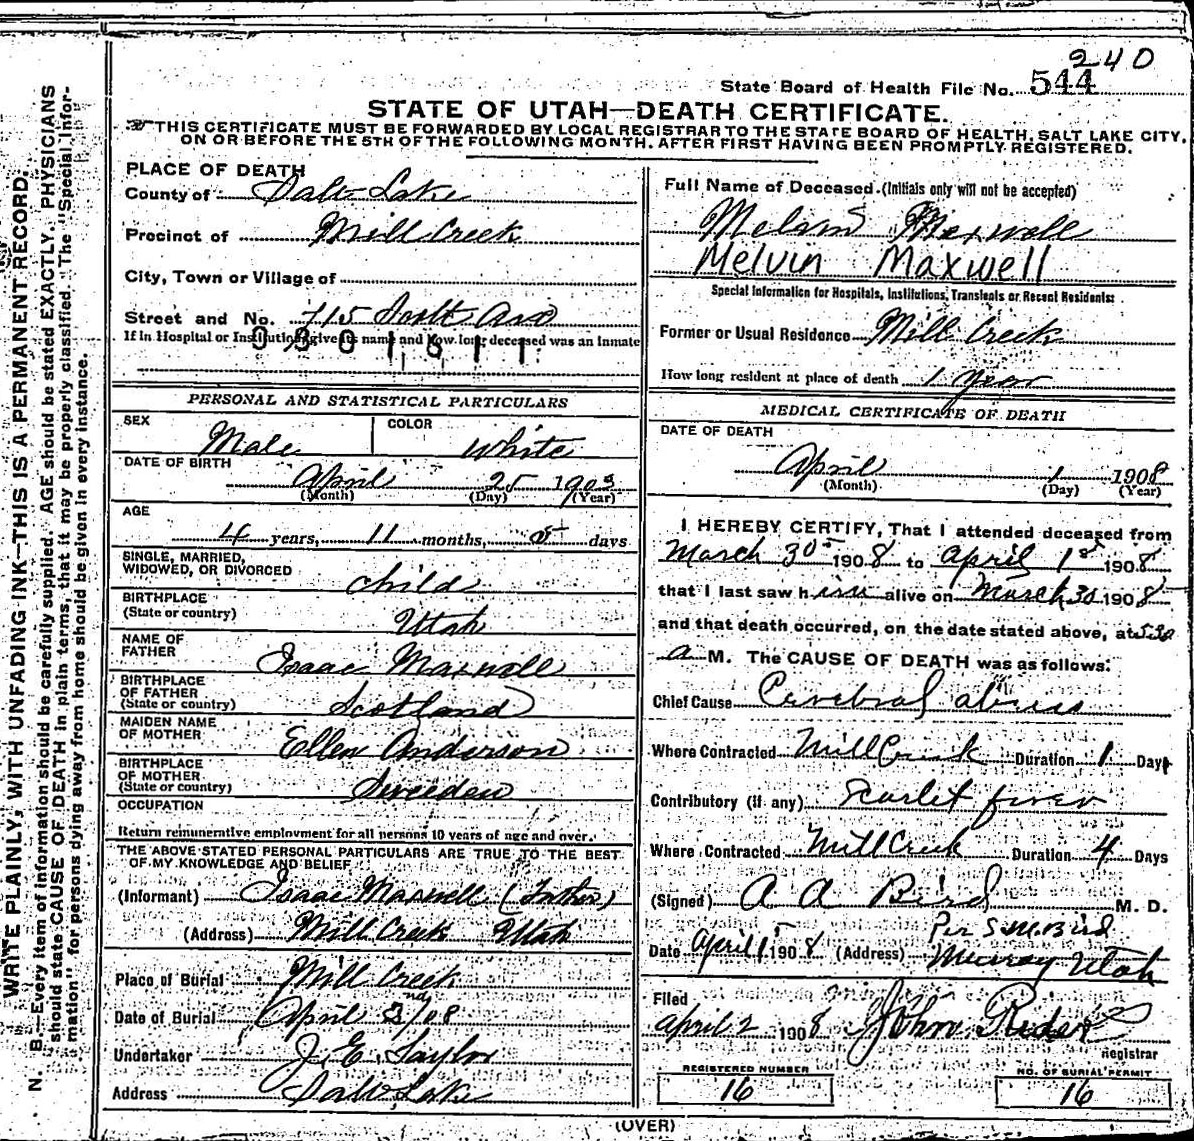 240
State Board of Health File No. 544
STATE OF UTAH—DEATH CERTIFICATE.
THIS CERTIFICATE MUST BE FORWARDED BY LOCAL REGISTRAR TO THE STATE BOARD OF HEALTH, SALT LAKE CITY,
ON OR BEFORE THE 5TH OF THE FOLLOWING MONTH, AFTER FIRST HAVING BEEN PROMPTLY REGISTERED.
WRITE PLAINLY, WITH UNFADING INK—THIS IS A PERMANENT RECORD.
N. B.—Every item of information should be carefully supplied. AGE should be stated EXACTLY. PHYSICIANS
should state CAUSE OF DEATH in plain terms, that it may be properly classified. The "Special Infor-
mation" for persons dying away from home should be given in every instance.
PLACE OF DEATH
County of Salt Lake
Precinct of Mill Creek
City, Town or Village of
Street and No. 715 Scott Ave
If in Hospital or Institution give its name and how long deceased was an Inmate
0301611
PERSONAL AND STATISTICAL PARTICULARS
SEX Male COLOR White
DATE OF BIRTH
April 25 1903
(Month) (Day) (Year)
AGE
4 years, 11 months, 5 days
SINGLE, MARRIED,
WIDOWED, OR DIVORCED child
BIRTHPLACE
(State or country) Utah
NAME OF
FATHER Isaac Maxwell
BIRTHPLACE
OF FATHER
(State or country) Scotland
MAIDEN NAME
OF MOTHER Ellen Anderson
BIRTHPLACE
OF MOTHER
(State or country) Sweeden
OCCUPATION
Return remunerative employment for all persons 10 years of age and over.
THE ABOVE STATED PERSONAL PARTICULARS ARE TRUE TO THE BEST
OF MY KNOWLEDGE AND BELIEF
(Informant) Isaac Maxwell (Father)
(Address) Mill Creek Utah
Place of Burial Mill Creek
Date of Burial April 2nd/08
Undertaker J. E. Taylor
Address Salt Lake
Full Name of Deceased. (Initials only will not be accepted)
Melvin Maxwell
Melvin Maxwell
Special Information for Hospitals, Institutions, Transients or Recent Residents:
Former or Usual Residence Mill Creek
How long resident at place of death 1 year
MEDICAL CERTIFICATE OF DEATH
DATE OF DEATH
April 1 1908
(Month) (Day) (Year)
I HEREBY CERTIFY, That I attended deceased from
March 30 1908 to April 1st 1908
that I last saw him alive on March 30 1908
and that death occurred, on the date stated above, at 530
a M. The CAUSE OF DEATH was as follows:
Chief Cause Cerebral abscess
Where Contracted Mill Creek Duration 1 Days
Contributory (if any) Scarlet fever
Where Contracted Mill Creek Duration 4 Days
(Signed) A A Bird M. D.
Per S.M. Bird
Date April 1st 1908 (Address) Murray Utah
Filed
April 2 1908 John Rider
registrar
REGISTERED NUMBER NO. OF BURIAL PERMIT
16 16
(OVER)